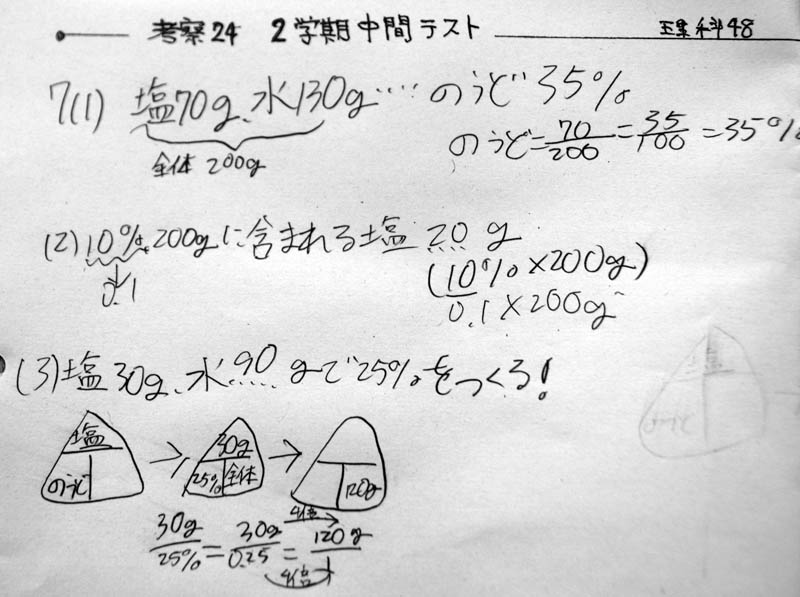 考察24 2学期中間テスト 理科48
7(1) 塩70g、水130g‥‥のうど35%
全体 200g
のうど=70/200=35/100=35%
(2) 10% 200gに含まれる塩 20 g
0.1
(10%×200g)
0.1×200g
(3)塩30g、水90gで25%をつくる!
塩 のうど → 30g 25% 全体 → 120g
30g/25%=30g/0.25=120g/1
4倍
4倍
塩
のうど